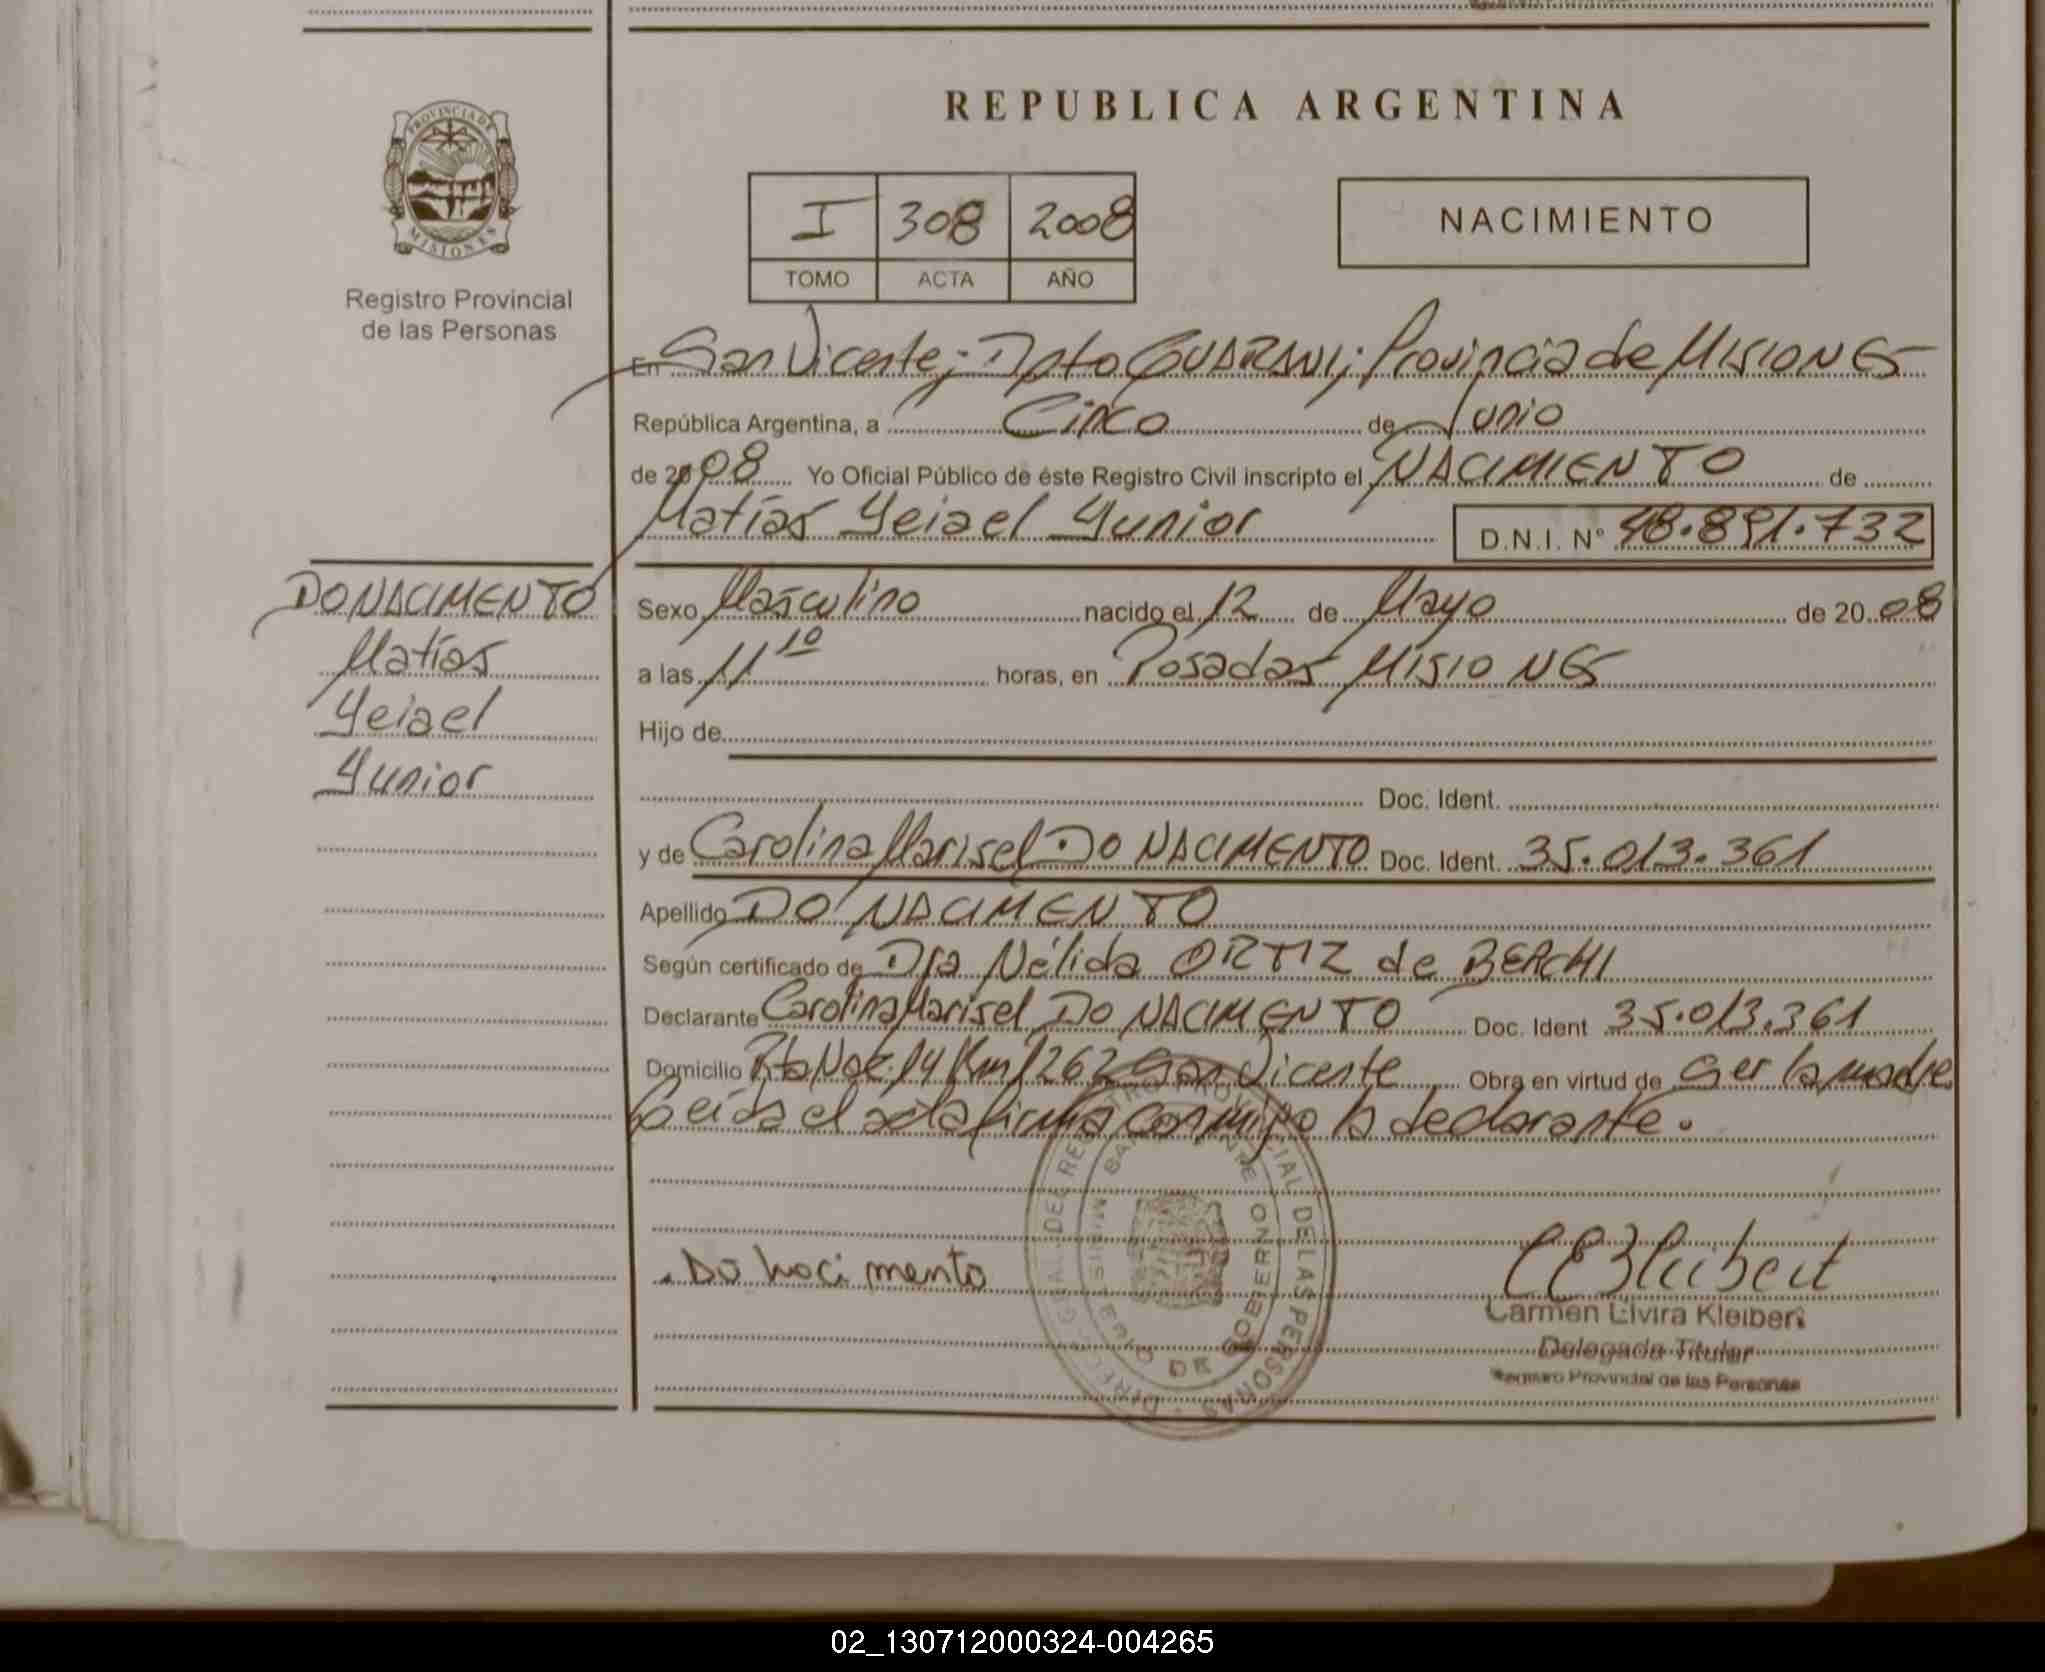 REPUBLICA ARGENTINA
PROVINCIA DE
MISIONES
Registro Provincial
de las Personas
I 308 2008
TOMO ACTA AÑO
NACIMIENTO
En San Vicente; Dpto GUARANI; Provincia de MISIONES
República Argentina, a Cinco de Junio
de 2008 Yo Oficial Público de éste Registro Civil inscripto el NACIMIENTO de
Matías Yeiael Yunior D.N.I. N° 48.891.732
DO NACIMENTO
Matías
Yeiael
Yunior
Sexo Masculino nacido el 12 de Mayo de 2008
a las 11 10 horas, en Posadas MISIONES
Hijo de
Doc. Ident.
y de Carolina Marisel DO NACIMENTO Doc. Ident. 35.013.361
Apellido DO NACIMENTO
Según certificado de Dra Nélida ORTIZ de BERCHI
Declarante Carolina Marisel DO NACIMENTO Doc. Ident 35.013.361
Domicilio Rta Nac. 14 Km 1262 San Vicente Obra en virtud de ser la madre
Leída el acta firma conmigo la declarante.
Do naci mento
DIREC. GRAL. DEL REGISTRO PROVINCIAL DE LAS PERSONAS
DE GOBIERNO
Carmen Elvira Kleibert
Delegada Titular
Registro Provincial de las Personas
02_130712000324-004265